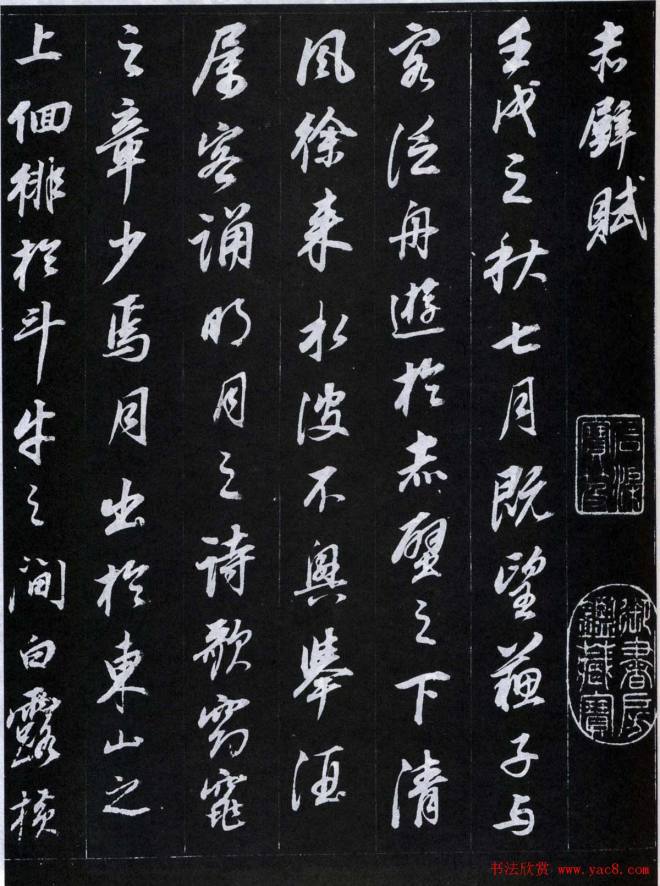 赤壁賦
石渠寶笈
御書房鑒藏寶
壬戌之秋七月既望蘇子与
客泛舟遊於赤壁之下清
風徐来水波不興舉酒
屬客誦明月之詩歌窈窕
之章少焉月出於東山之
上佪徘於斗牛之間白露横
书法欣赏 www.yac8.com